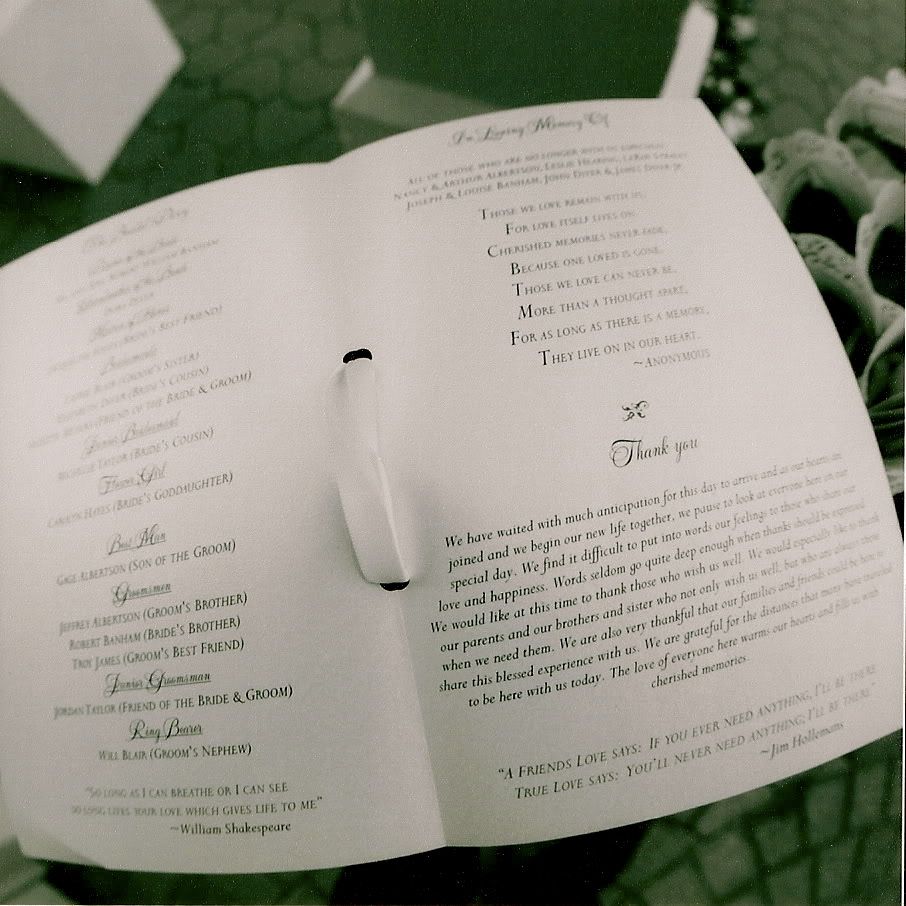 The Bridal Party
Parents of the Bride
Robert William Banham
Grandmother of the Bride
Matron of Honor
(Bride's Best Friend)
Bridesmaids
Laurie Blair (Groom's Sister)
Elizabeth Dixer (Bride's Cousin)
(Friend of the Bride & Groom)
Junior Bridesmaid
Michelle Taylor (Bride's Cousin)
Flower Girl
Carolyn Hayes (Bride's Goddaughter)
Best Man
Gage Albertson (Son of the Groom)
Groomsmen
Jeffrey Albertson (Groom's Brother)
Robert Banham (Bride's Brother)
Troy James (Groom's Best Friend)
Junior Groomsman
Jordan Taylor (Friend of the Bride & Groom)
Ring Bearer
Will Blair (Groom's Nephew)
"So long as I can breathe or I can see
so long lives your love which gives life to me"
~William Shakespeare
In Loving Memory Of
All of those who are no longer with us
Nancy & Arthur Albertson, Leslie
Joseph & Louise Banham, John Dixer & James Dixer Jr.
Those we love remain with us,
For love itself lives on.
Cherished memories never fade,
Because one loved is gone.
Those we love can never be,
More than a thought apart,
For as long as there is a memory,
They live on in our heart.
~Anonymous
Thank you
We have waited with much anticipation for this day to arrive and as our hearts are
joined and we begin our new life together, we pause to look at everyone here on our
special day. We find it difficult to put into words our feelings to those who share our
love and happiness. Words seldom go quite deep enough when thanks should be expressed
We would like at this time to thank those who wish us well. We would especially like to thank
our parents and our brothers and sister who not only wish us well; but who are always there
when we need them. We are also very thankful that our families and friends could be here to
share this blessed experience with us. We are grateful for the distances that many have traveled
to be here with us today. The love of everyone here warms our hearts and fills us with
cherished memories.
"A Friends Love says: If you ever need anything, I'll be there
True Love says: You'll never need anything; I'll be there"
~Jim Hollemans